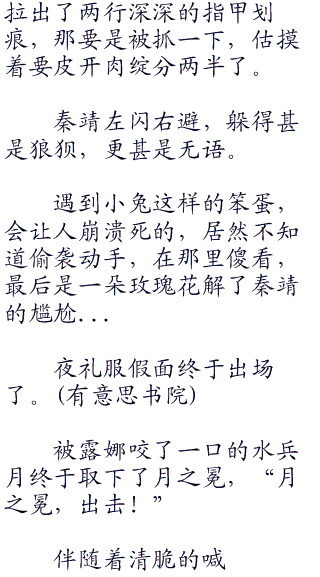 拉出了两行深深的指甲划
痕，那要是被抓一下，估摸
着要皮开肉绽分两半了。
秦靖左闪右避，躲得甚
是狼狈，更甚是无语。
遇到小兔这样的笨蛋，
会让人崩溃死的，居然不知
道偷袭动手，在那里傻看，
最后是一朵玫瑰花解了秦靖
的尴尬...
夜礼服假面终于出场
了。(有意思书院)
被露娜咬了一口的水兵
月终于取下了月之冕，“月
之冕，出击！”
伴随着清脆的喊